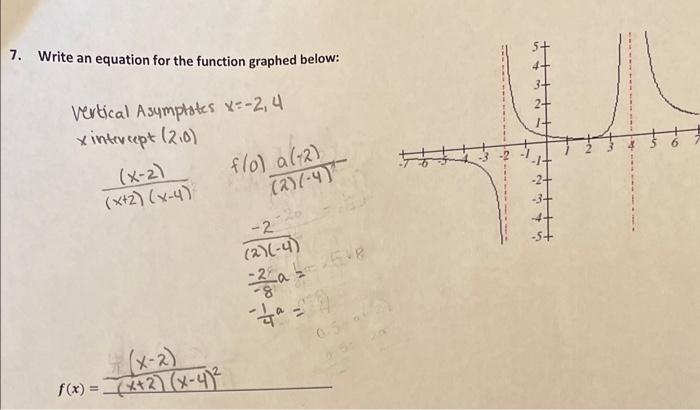 7. Write an equation for the function graphed below:
Vertical Asymptotes x=-2, 4
x intercept (2,0)
(x-2)
(x+2) (x-4)
f(0) a(-2)
(2)(-4)²
-2
(2)(-4)
-2 a =
-8
-1 a =
4
f(x) = (x-2)
(x+2) (x-4)²
5
4
3
2
1
-7 -6 -5 -4 -3 -2 -1 1 2 3 4 5 6 7
-1
-2
-3
-4
-5